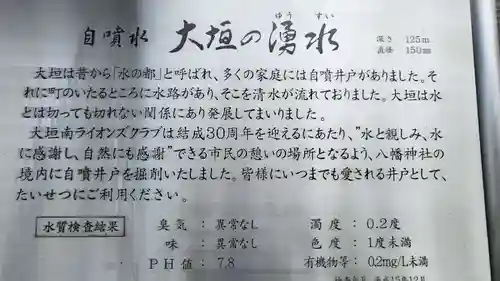 自噴水 大垣の湧水
ゆう すい
深さ 125m
直径 150mm
大垣は昔から「水の都」と呼ばれ、多くの家庭には自噴井戸がありました。そ
れに町のいたるところに水路があり、そこを清水が流れておりました。大垣は水
とは切っても切れない関係にあり発展してまいりました。
大垣南ライオンズクラブは結成30周年を迎えるにあたり、"水と親しみ、水
に感謝し、自然にも感謝"できる市民の憩いの場所となるよう、八幡神社の
境内に自噴井戸を掘削いたしました。皆様にいつまでも愛される井戸として、
たいせつにご利用ください。
水質検査結果
臭気 : 異常なし 濁度 : 0.2度
味 : 異常なし 色度 : 1度未満
PH値 : 7.8 有機物等 : 0.2mg/L未満
平成15年12月